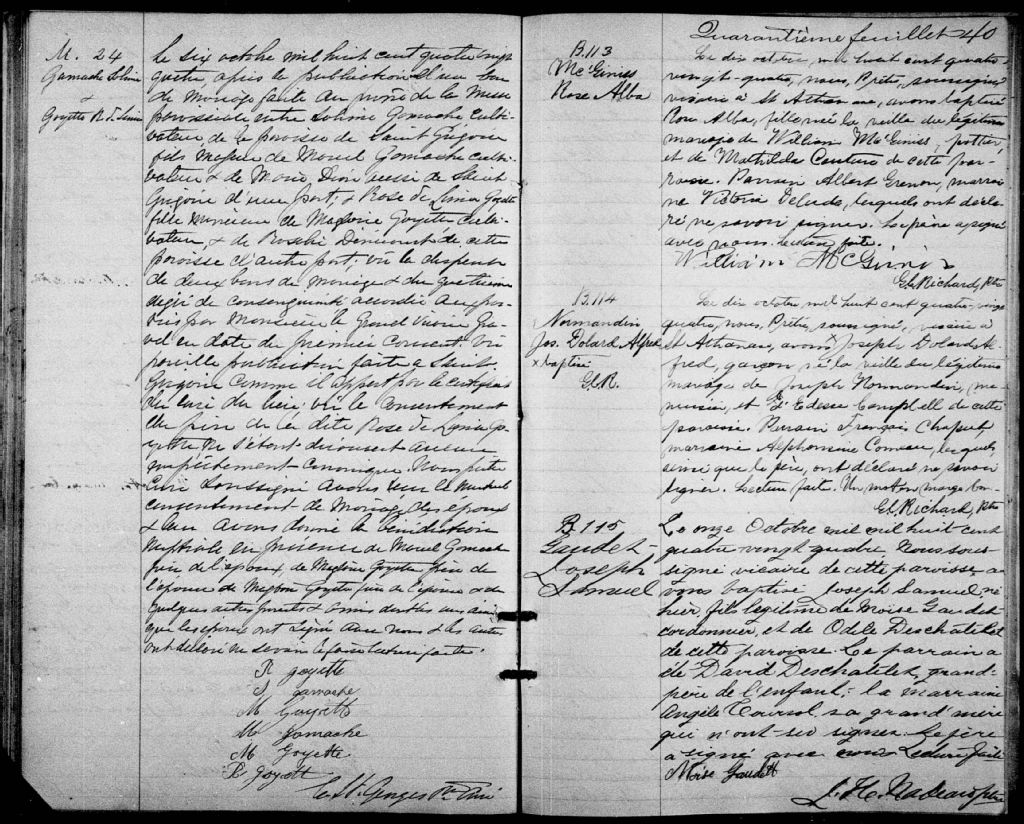 M. 24
Gamache Solime
&
Goyette R. de Lima
Le six octobre mil huit cent quatre vingt
quatre après la publication d'un ban
de mariage faite au prône de la Messe
paroissiale entre Solime Gamache culti-
vateur, de la paroisse de Saint Grégoire
fils Majeur de Marcel Gamache culti-
vateur & de Marie aussi de Saint
Grégoire d'une part, & Rose de Lima Goyette
fille mineure de Magloire Goyette culti-
vateur, & de de cette
paroisse d'autre part, vu la dispense
de deux bans de mariage & du quatrième
degré de consanguinité accordée
par Monsieur le Grand Vicaire
en date du premier courant. Vu
pareille publication faite à Saint
Grégoire comme il appert par le certificat
du curé du lieu; vu le consentement
du père de la dite Rose de Lima Go-
yette ne s'étant découvert aucun
empêchement canonique. Nous prêtre
Curé soussigné avons reçu le mutuel
consentement de Mariage des époux
& leur avons donné la bénédiction
nuptiale en présence de Marcel Gamache
père de l'époux, de Magloire Goyette père de
l'épouse de Magloire Goyette père de l'épouse & de
quelques autres parents & amis dont les uns ainsi
que les époux ont signé avec nous & les autres
ont déclaré ne savoir le faire lecture faite.
R goyette
S gamache
M Goyette
M Gamache
M Goyette
R Goyott
C. St. Georges Ptre Curé
Quarantième feuillet 40
B.113
McGiniss
Rose Alba
Le dix octobre, mil huit cent quatre-
vingt-quatre, nous, Prêtre, soussigné,
vicaire à St Athanase, avons baptisé
Rose Alba, fille née la veille du légitime
mariage de William McGiniss, pottier,
et de Mathilda Couture de cette pa-
roisse. Parrain Albert Grenon, marrai-
ne Victoria lesquels ont décla-
ré ne savoir signer. Le père a signé
avec nous. Lecture faite.
William McGinnis
El. Richard, Ptre
B.114
Normandin
Jos. Dolard Alfred
x baptisé
El.R.
Le dix octobre mil huit cent quatre-vingt
quatre, nous, Prêtre, soussigné, vicaire à
St Athanase, avons x Joseph Dolard Al-
fred, garçon né la veille du légitime
mariage de Joseph Normandin, me-
nuisier, et d'Edesse Campbell de cette
paroisse. Parrain François Chaput,
marraine Alphonsine Comeau, lesquels
ainsi que le père, ont déclaré ne savoir
signer. Lecture faite. Un mot en marge bon
El. Richard, Ptre
B 115
Gaudet
Joseph
Samuel
Le onze Octobre mil mil huit cent
quatre vingt quatre Nous sous-
signé vicaire de cette paroisse a-
vons baptisé Joseph Samuel né
hier fils légitime de Moïse Gaudet
cordonnier, et de Odile Deschatelet
de cette paroisse. Le parrain a
été David Deschatelet, grand-
père de l'enfant; la marraine
Angèle sa grand'mère
qui n'ont su signer. Le père
a signé avec nous Lecture faite
Moise Gaudett
J. H. Nadeau ptre